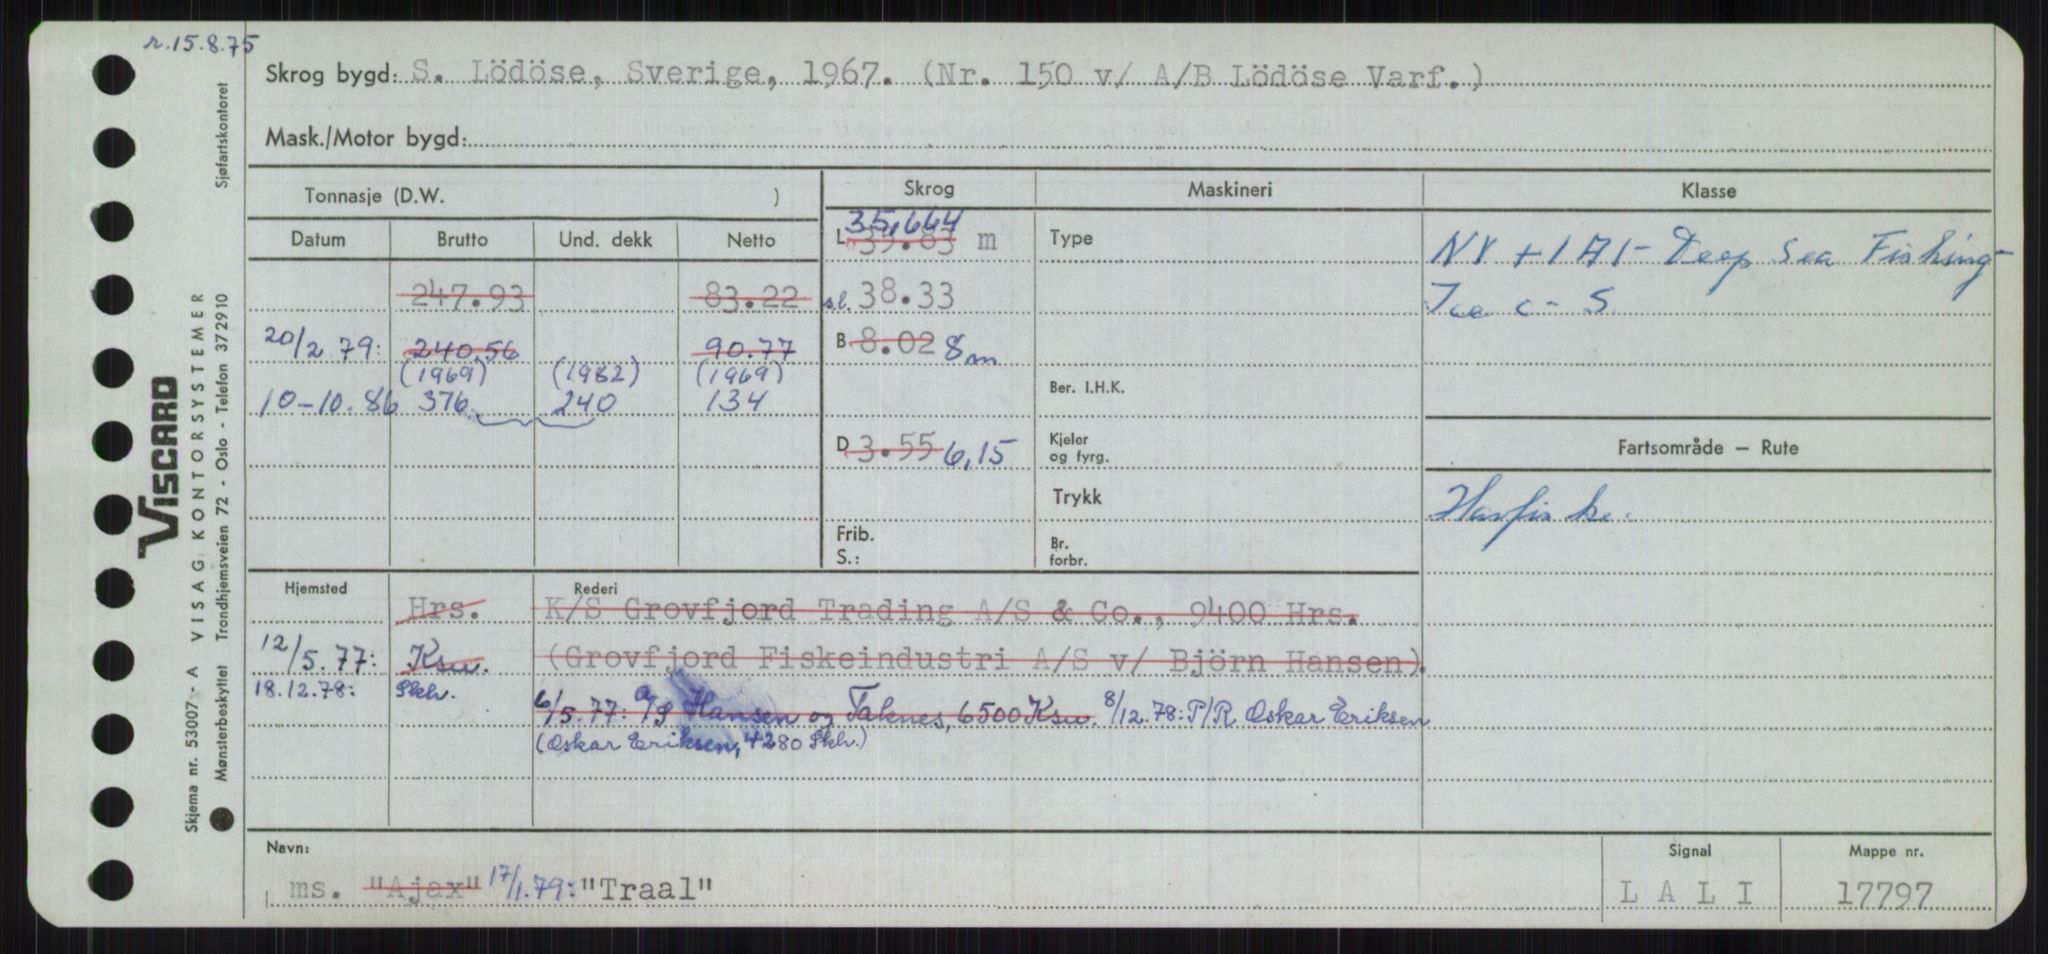 r.15.8.75
Skrog bygd: S. Lödöse, Sverige, 1967. (Nr. 150 v/ A/B Lödöse Varf.)
Mask./Motor bygd:
Tonnasje (D.W. )
Skrog
Maskineri
Klasse
Datum
Brutto
Und. dekk
Netto
35,664
L 39.83 m
Type
NV +1A1- Deep Sea Fishing-
247.93
83.22
sl. 38.33
Ice C - S
20/2 79:
240,56
90.77
B 8.02 8m
(1969)
(1982)
(1969)
Ber. I.H.K.
10-10.86
376
240
134
D 3.55 6,15
Kjeler
og fyrg.
Fartsområde – Rute
Trykk
Havfiske.
Frib.
S.:
Br.
forbr.
Hjemsted
Rederi
Hrs.
K/S Grovfjord Trading A/S & Co., 9400 Hrs.
12/5.77:
Ksu.
(Grovfjord Fiskeindustri A/S v/ Björn Hansen).
18.12.78:
Skh.
6/5.77: A/S Hansen og Taknes, 6500 Ksu. 8/12.78: P/R Oskar Eriksen
(Oskar Eriksen, 4280 Skh.)
Navn:
Signal
Mappe nr.
ms. "Ajax" 17/1.79: "Traal"
L A L I
17797
VISCARD
Skjema nr. 53007 - A VISAG KONTORSYSTEMER
Mønsterbeskyttet Trondhjemsveien 72 - Oslo - Telefon 372910 Sjøfartskontoret